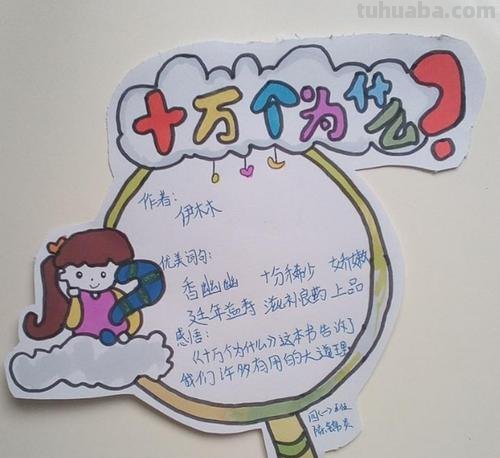 tuhuaba.com
十万个为什么?
作者:
伊林木
优美词句:
香幽幽 十分稀少 娇嫩
延年益寿 滋补良药 上品
感悟:
《十万个为什么》这本书告诉了
我们许多有用的大道理
四(一)班